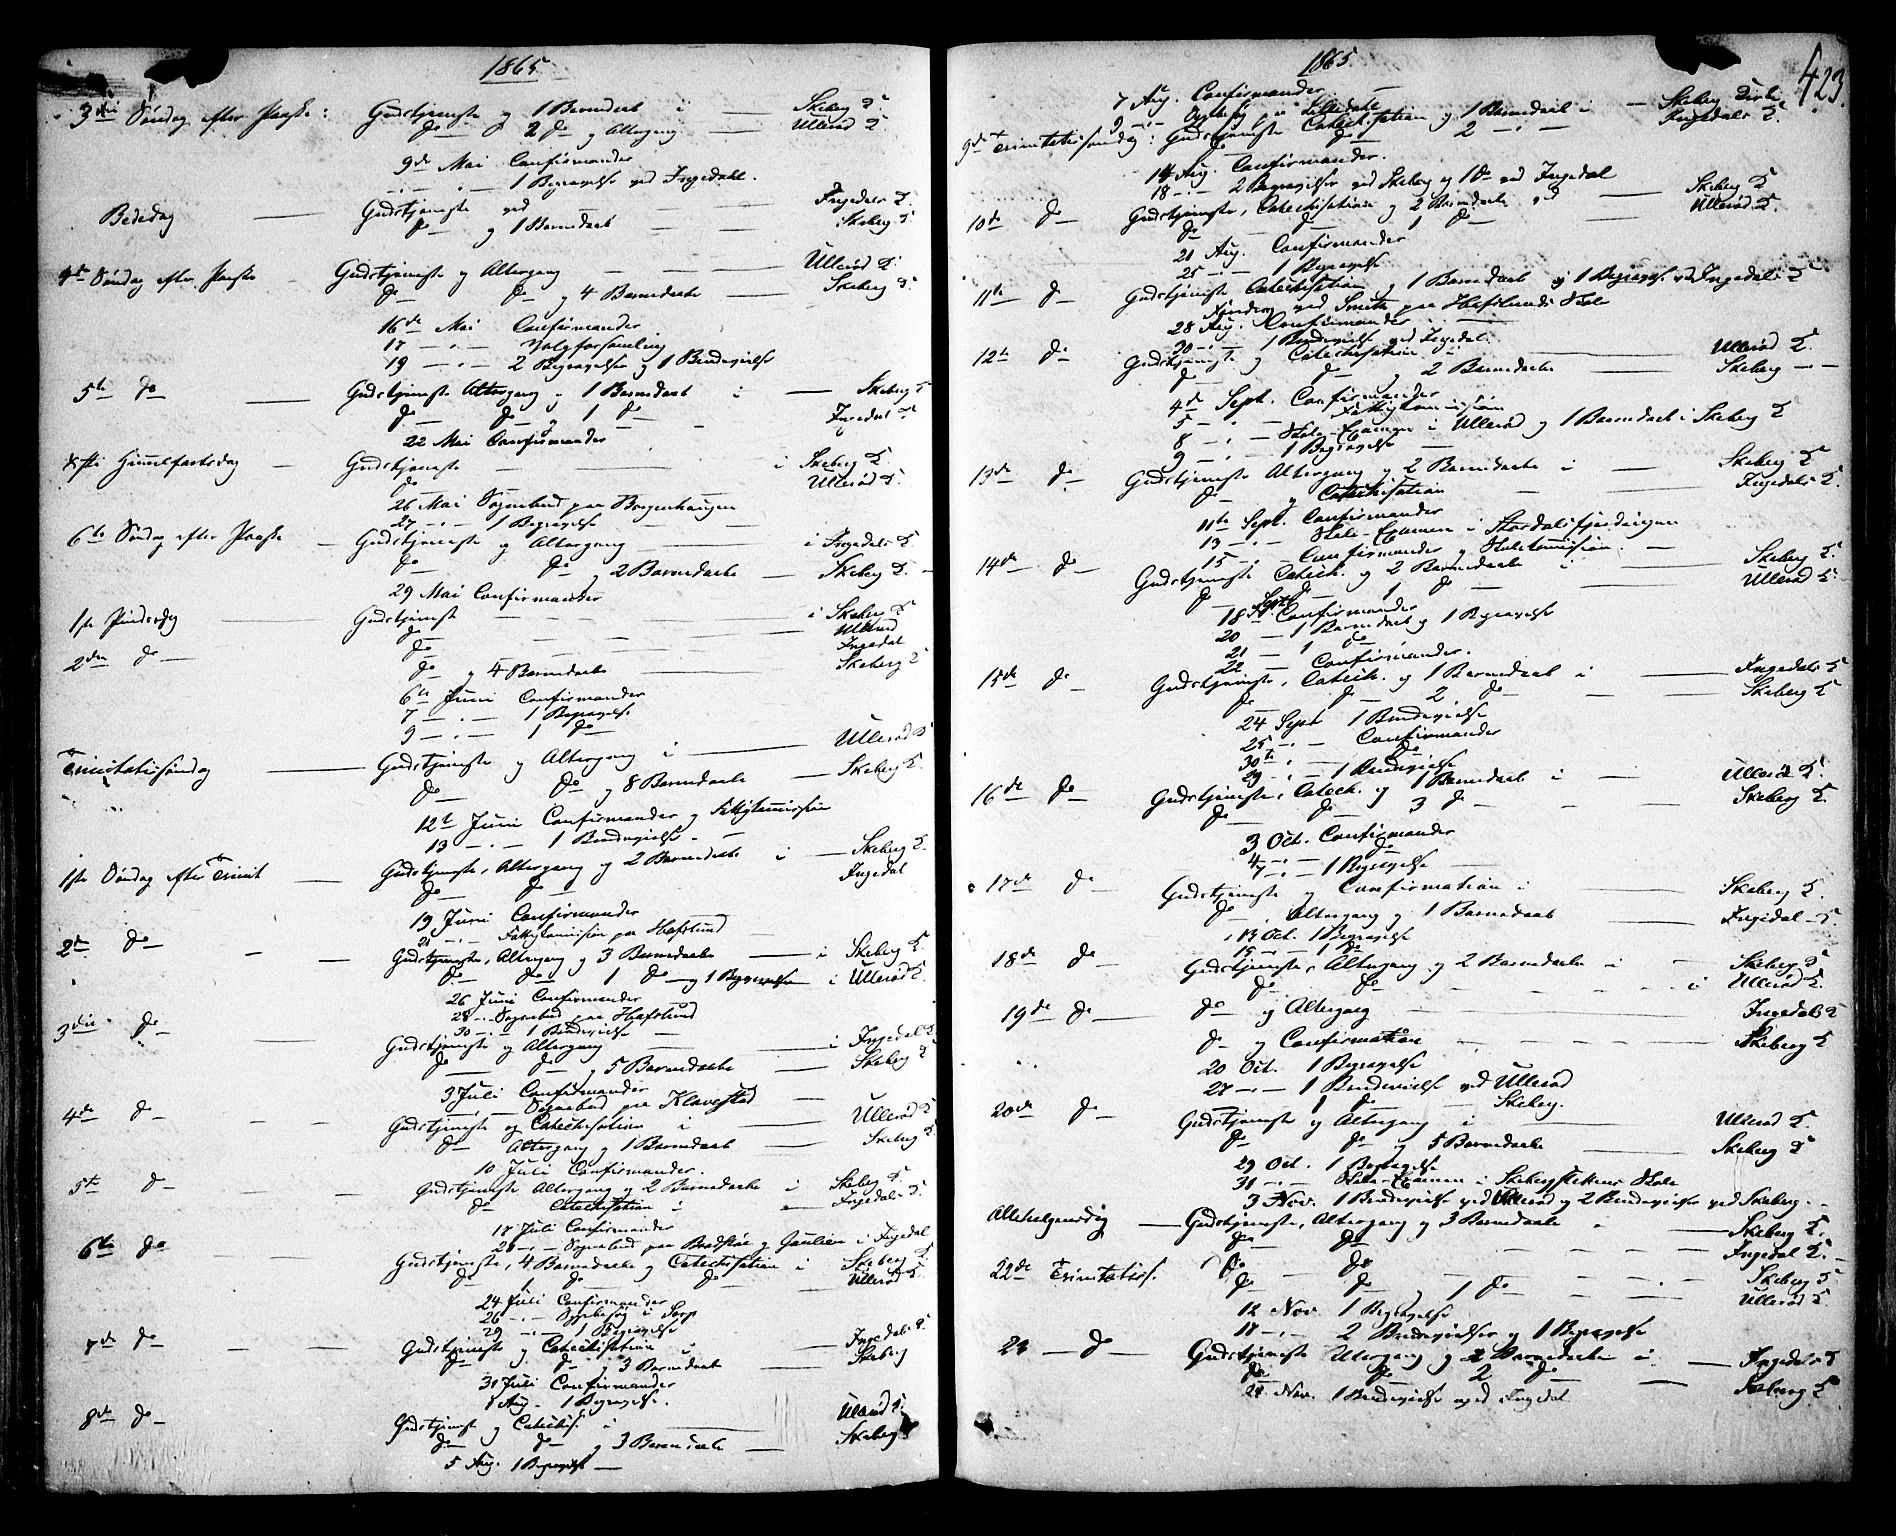 1865
3die Søndag efter Paaske: Gudstjeneste og 1 Barnedaab i — Skeberg K
do — og 2 do og Altergang — Ullerød K.
9de Mai Confirmander
— " — 1 Begravelse ved Ingedahl.
Bededag — Gudstjeneste ved — Ingedals K.
do — og 1 Barnedaab — Skeberg K
4de Søndag efter Paaske — Gudstjeneste og Altergang — Ullerød K.
do — do — og 4 Barnedaabe — Skeberg K.
16de Mai Confirmander
17 — " — Valgforsamling
19 — " — 2 Begravelser og 1 Brudevielse
5te do — Gudstjeneste Altergang og 1 Barnedaab i — Skeberg K
do — do og 1 do — Ingedal K
22 Mai Confirmander
Christi Himmelfartsdag — Gudstjeneste — i Skeberg K.
do — Ullerød K.
26 Mai Sognebud paa Borgenhaugen
27 — " — 1 Begravelse
6te Søndag efter Paaske — Gudstjeneste og Altergang — i Ingedals K.
do — do og 2 Barnedaabe — Skeberg K.
29 Mai Confirmander
1ste Pindsedag Gudstjeneste — i Skeberg K
do — Ullerød
2den do — do — Ingedal
do — og 4 Barnedaabe — Skeberg K
6te Juni Confirmander
7 — " — 1 Begravelse
9 — " — 1 do
Trinitatissøndag — Gudstjeneste og Altergang i — Ullerød K
do — do og 8 Barnedaabe — Skeberg K.
12te Juni Confirmander og Fattigkommission
13 — " — 1 Brudevielse —
1ste Søndag efter Trinit — Gudstjeneste, Altergang og 2 Barnedaabe i — Skeberg K.
do — do — Ingedal
19 Juni Confirmander
21 — " — Fattigkommission paa Hafslund
2den do — Gudstjeneste, Altergang og 3 Barnedaabe — i Skeberg K.
do — do — 1 do — og 1 Begravelse i Ullerød K.
26 Juni Confirmander
28 — " — Sognebud paa Hafslund
30 — " — 1 Brudevielse
3die do — Gudstjeneste og Altergang — i Ingedal K
do — do og 5 Barnedaabe — Skeberg K
3 Juli Confirmander
— " — Sognebud paa Klavestad
4de do — Gudstjeneste og Catechisation i — Ullerød K
do — Altergang og 1 Barnedaab — Skeberg K
10 Juli Confirmander.
5te do — Gudstjeneste Altergang og 2 Barnedaabe i — Skeberg K.
do — Catechisation i — Ingedals K.
17 Juli Confirmander
— " — Sognebud paa og i Ingedal
6te do — Gudstjeneste, 4 Barnedaabe og Catechisation i Skeberg K.
do — 1 do do — Ullerød K.
24 Juli Confirmander
26 — " — i Sarp
29 — " — 1 Begravelse
7de do — Gudstjeneste og Catechisation i — Ingedals K.
do — do og 3 Barnedaab — Skeberg
31 Juli Confirmander
1 Aug. 1 Begravelse.
8de do — Gudstjeneste og Catechis. i — Ullerød K.
do — do — og 3 Barnedaabe — Skeberg
5 Aug. 1 Begravelse —
1865.
423.
7 Aug. Confirmander —
9 — " —
9de Trinitatissøndag: Gudstjeneste Catechisation og 1 Barnedaab i — Skeberg Kirke
do — do — 2 — " — Ingedals K.
14 Aug. Confirmander.
18 — " — 2 Begravelser ved Skeberg og 1 do ved Ingedal
10de do — Gudstjeneste, Catechisation og 2 Barnedaabe ved — Skeberg K
do — do — 1 do — Ullerød K.
21 Aug. Confirmander
25 — " — 1 Begravelse
11te do — Gudstjeneste Catechisation og 1 Barnedaab og 1 Begravelse ved Ingedals K
ved Smith paa Hafslunds Skole
28 Aug. Confirmander
30 — " — 1 Brudevielse ved Ingedal.
12te do — Gudstjeneste og Catechisation i — Ullerød K.
do — do og 2 Barnedaabe — Skeberg — —
4de Sept. Confirmander
5 — " — Fattigkommission
8 — " — Skole-Examen i Ullerød og 1 Barnedaab i Skeberg K
9 — " — 1 Begravelse
13de do — Gudstjeneste Altergang og 2 Barnedaabe i — Skeberg K
do — og Catechisation — Ingedals K.
11te Sept. Confirmander
13 — " — Skole-Examen i Stordalsfjerdingen
15 — " — Confirmander og Skolekommission. —
14de do — Gudstjeneste Catech. og 2 Barnedaabe i — Skeberg K.
do — do — 1 do — Ullerød K.
18 Sept. Confirmander
20 — 1 Barnedaab og 1 Begravelse
21 — 1 do
22 — Confirmander.
15de do — Gudstjeneste, Catech. og 1 Barnedaab i — Ingedals K
do — do — 2 do — Skeberg K
24 Sept 1 Brudevielse
25 — " — Confirmander
30te — " — do
29 — " — 1 Brudevielse
16de do — Gudstjeneste, Catech. og 1 Barnedaab i — Ullerød K.
do — do — 3 do — Skeberg K.
3 Oct. Confirmander
4 — " — do
7 — " — 1 Begravelse
17de do — Gudstjeneste og Confirmation i — Skeberg K.
do — Altergang og 1 Barnedaab — Ingedal K
13 Oct. 1 Begravelse
15 — " — 1 do
18de do — Gudstjeneste, Altergang og 2 Barnedaabe i — Skeberg K
do — do — i Ullerød K.
19de do — do og Altergang — Ingedals K
do — og Confirmation — Skeberg K
20 Oct. 1 Begravelse
27 — " — 1 Brudevielse ved Ullerød
— 1 do — Skeberg.
20de do — Gudstjeneste og Altergang i — Ullerød K.
do — do og 5 Barnedaabe — Skeberg K
29 Oct. 1 Begravelse
31 — " — Skole-Examen i Skebergslettens Skole
3 Nov. 1 Brudevielse ved Ullerød og 2 Brudevielser ved Skeberg.
Allehelgensdag — Gudstjeneste, Altergang og 3 Barnedaabe — Skeberg K.
do — do — Ingedal K.
22de Trinitatiss. do — do — Skeberg K
do — do — 1 do — Ullerød K
12 Nov. 1 Begravelse
17 — " — 2 Brudevielser og 1 Begravelse
23 — do — Gudstjeneste Altergang og 2 Barnedaabe i — Ingedals K
do — do — 2 do — Skeberg K
28 Nov. 1 Brudevielse ved Ingedal